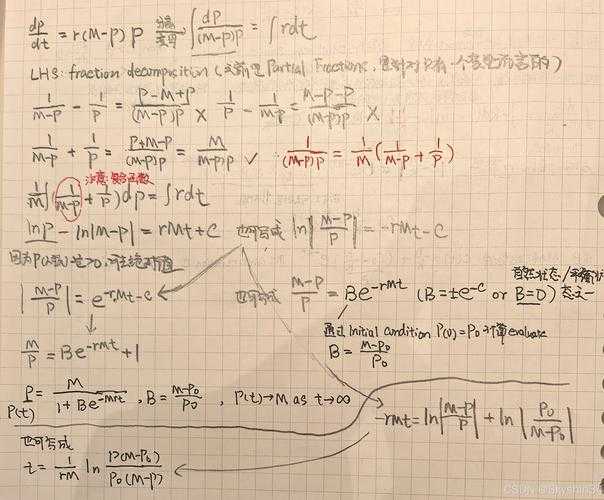 dp/dt = r(M-P)P 分离变量 ∫ dp/((M-P)P) = ∫ rdt
LHS: fraction decomposition (之前是 Partial Fractions, 是针对只有一个变量而言的)
1/(M-P) - 1/P = (P-M+P)/((M-P)P) × 1/P - 1/(M-P) = (M-P-P)/((M-P)P) ×
1/(M-P) + 1/P = (P+M-P)/((M-P)P) = M/((M-P)P) ✓ ∴ 1/((M-P)P) = 1/M (1/(M-P) + 1/P)
注意:复合函数
1/M ∫(1/(M-P) + 1/P)dp = ∫rdt
lnP - ln|M-P| = rMt + C 也可写成 ln|(M-P)/P| = -rMt-C
因为P(人数)≥0, 绝对值
|(M-P)/P| = e^(-rMt-c) 也可写成 (M-P)/P = Be^(-rMt) (B=±e^(-c) or B=0) 自然状态/平衡状态之一
通过 Initial condition P(0)=P₀ evaluate
B = (M-P₀)/P₀
M/P = Be^(-rMt) + 1
P = M/(1+Be^(-Mrt)), B = (M-P₀)/P₀, P(t)→M as t→∞
P(t)
-rMt = ln|(M-P)/P| + ln|P₀/(M-P₀)|
也可写成
t = 1/(rM) ln (P(M-P₀))/(P₀(M-P))
CSDN @Skyshin37